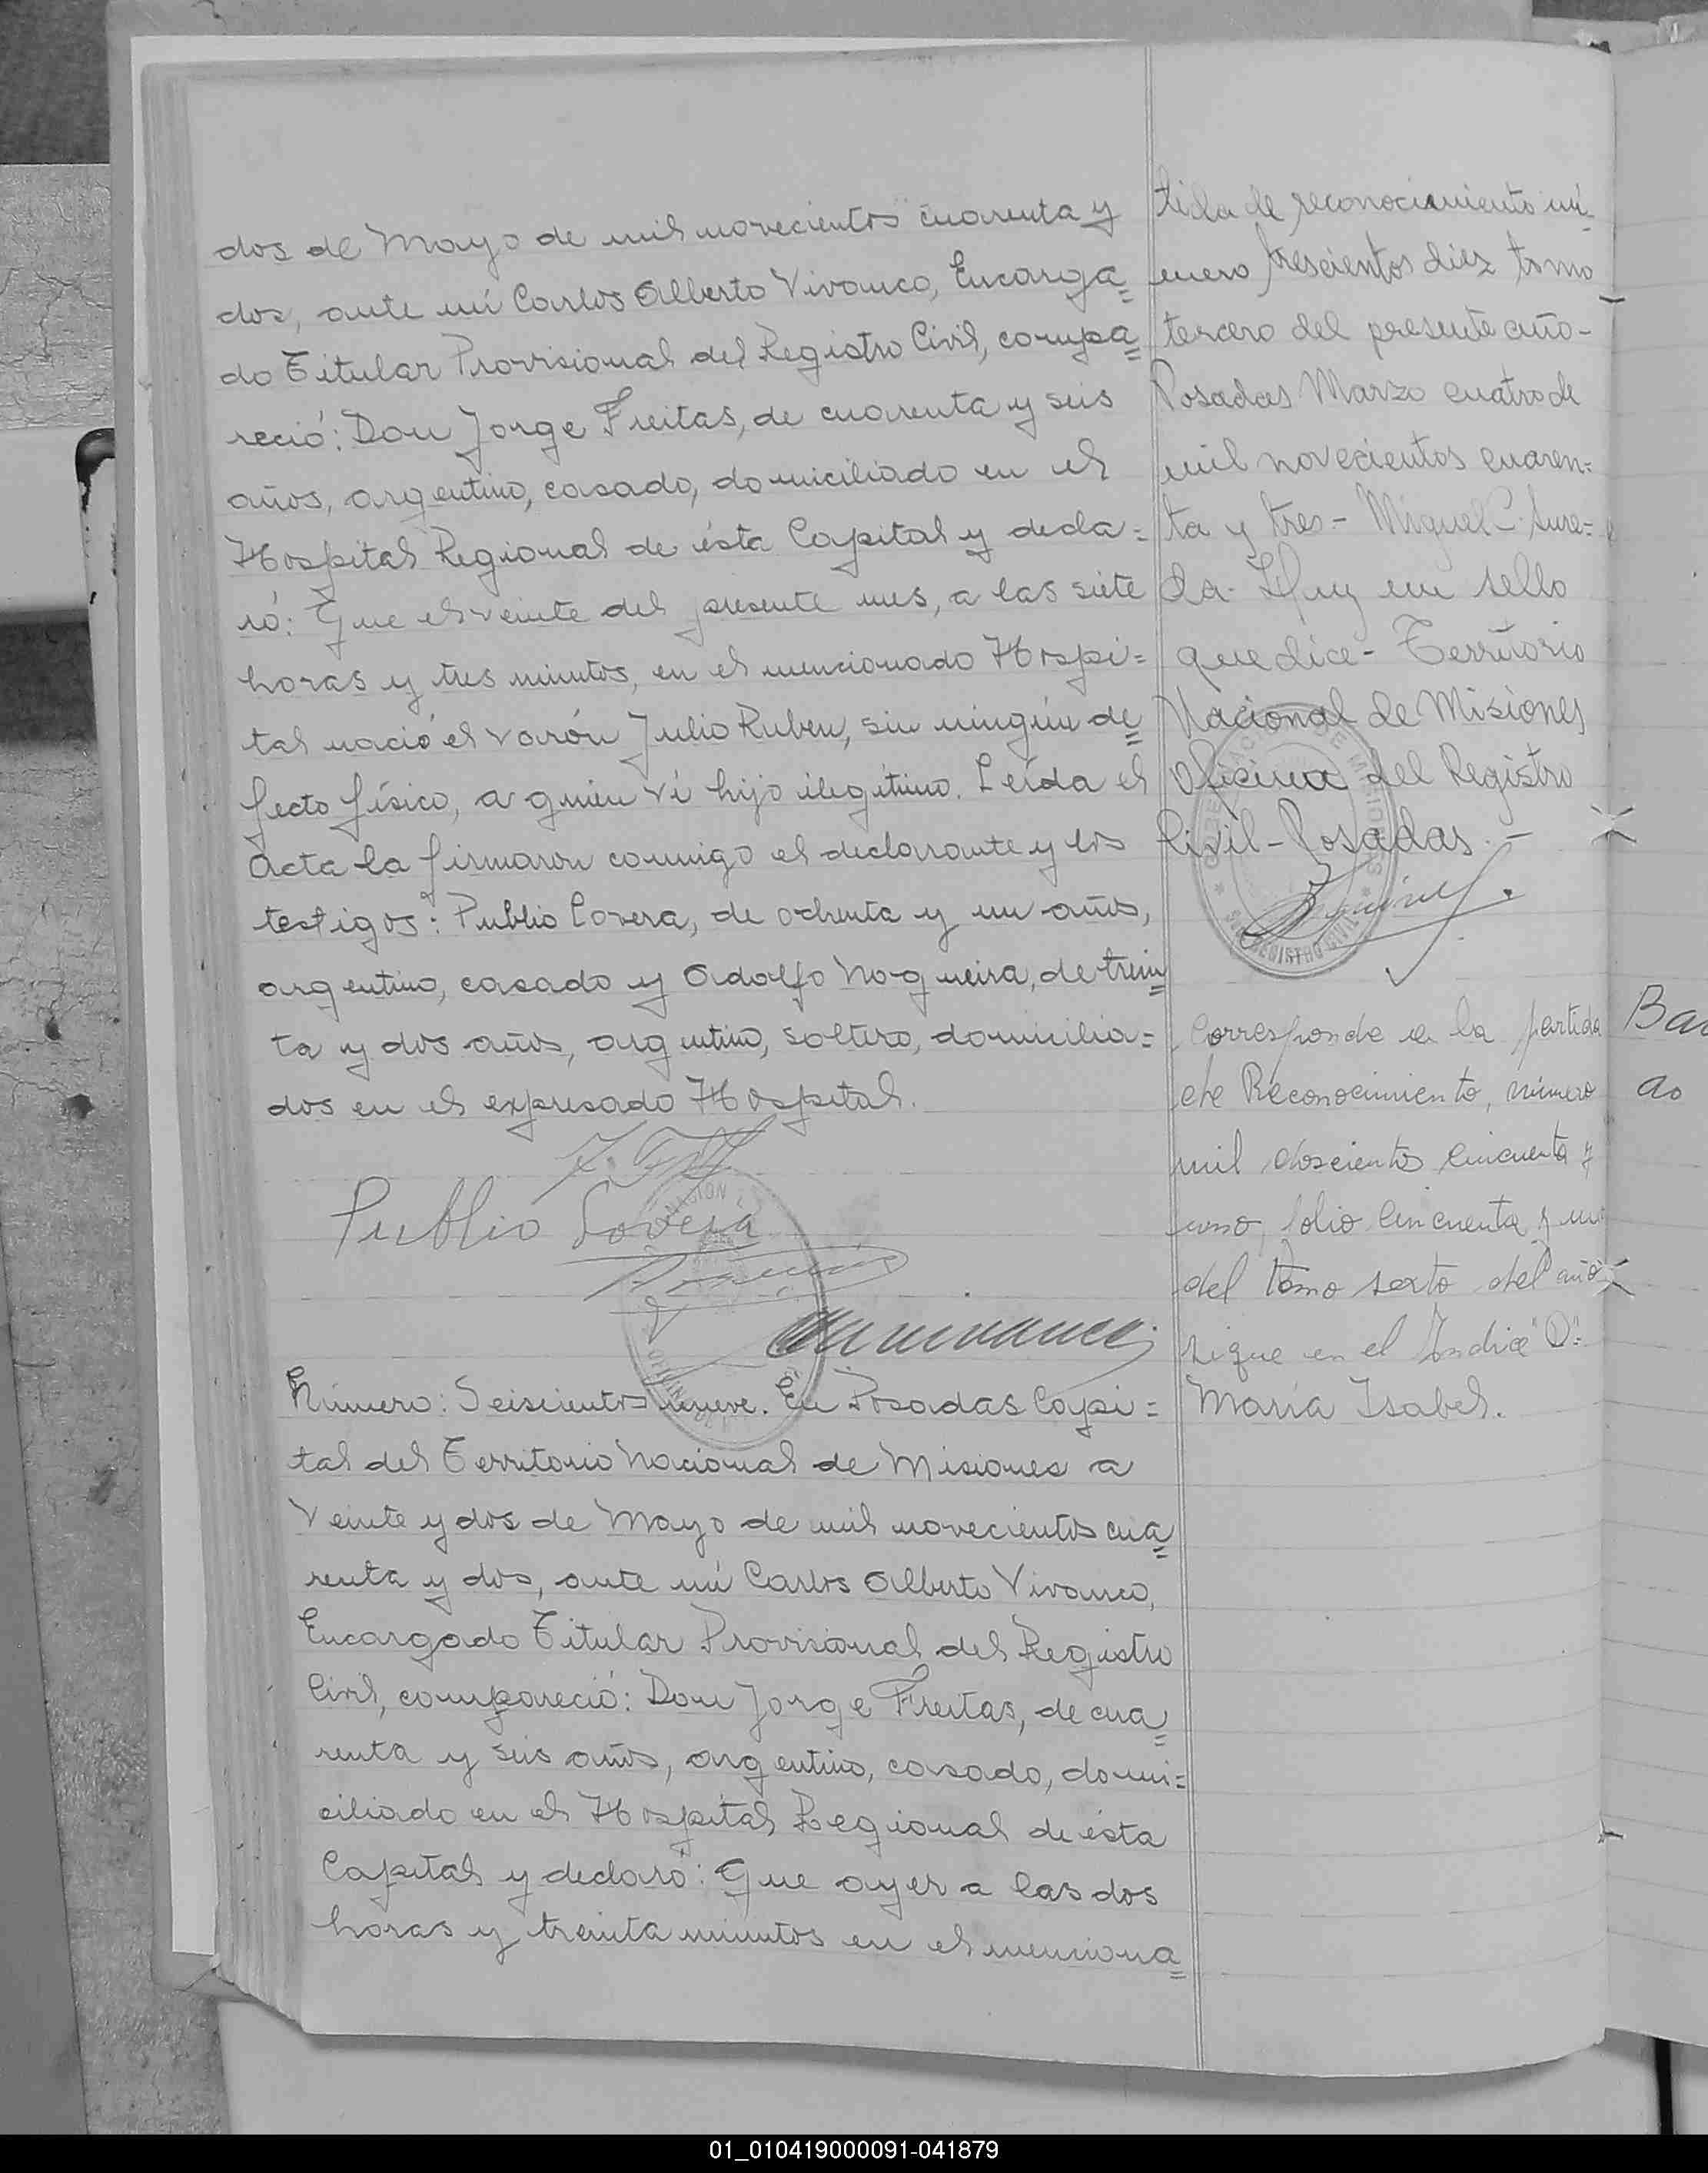 dos de Mayo de mil novecientos cuarenta y
dos, ante mí Carlos Alberto Vivanco, Encarga=
do Titular Provisional del Registro Civil, compa=
reció: Don Jorge Freitas, de cuarenta y seis
años, argentino, casado, domiciliado en el
Hospital Regional de ésta Capital y decla=
ró: Que el veinte del presente mes, a las siete
horas y tres minutos, en el mencionado Hospi=
tal nació el varón Julio Ruben, sin ningún de=
fecto físico, a quien vi hijo ilegítimo. Leída el
Acta la firmaron conmigo el declarante y los
testigos: Publio Lovera, de ochenta y un años,
argentino, casado y Adolfo Nogueira, de trein=
ta y dos años, argentino, soltero, domicilia=
dos en el expresado Hospital.
Publio Lovera
Número: Seiscientos nueve. En Posadas Capi=
tal del Territorio Nacional de Misiones a
Veinte y dos de Mayo de mil novecientos cua=
renta y dos, ante mí Carlos Alberto Vivanco,
Encargado Titular Provisional del Registro
Civil, compareció: Don Jorge Freitas, de cua=
renta y seis años, argentino, casado, domi=
ciliado en el Hospital Regional de ésta
Capital y declaró: Que ayer a las dos
horas y treinta minutos en el menciona=
tida de reconocimiento nú-
mero trescientos diez tomo
tercero del presente año-
Posadas Marzo cuatro de
mil novecientos cuaren=
ta y tres- Miguel C. Sure=
da- Hay un sello
que dice- Territorio
Nacional de Misiones
Oficina del Registro
Civil-Posadas.-
Corresponde a la partida
de Reconocimiento, número
mil doscientos cincuenta y
uno, folio cincuenta y uno
del tomo sexto del año
sigue en el Indice "O":
María Isabel.
Bar
ao
01_010419000091-041879